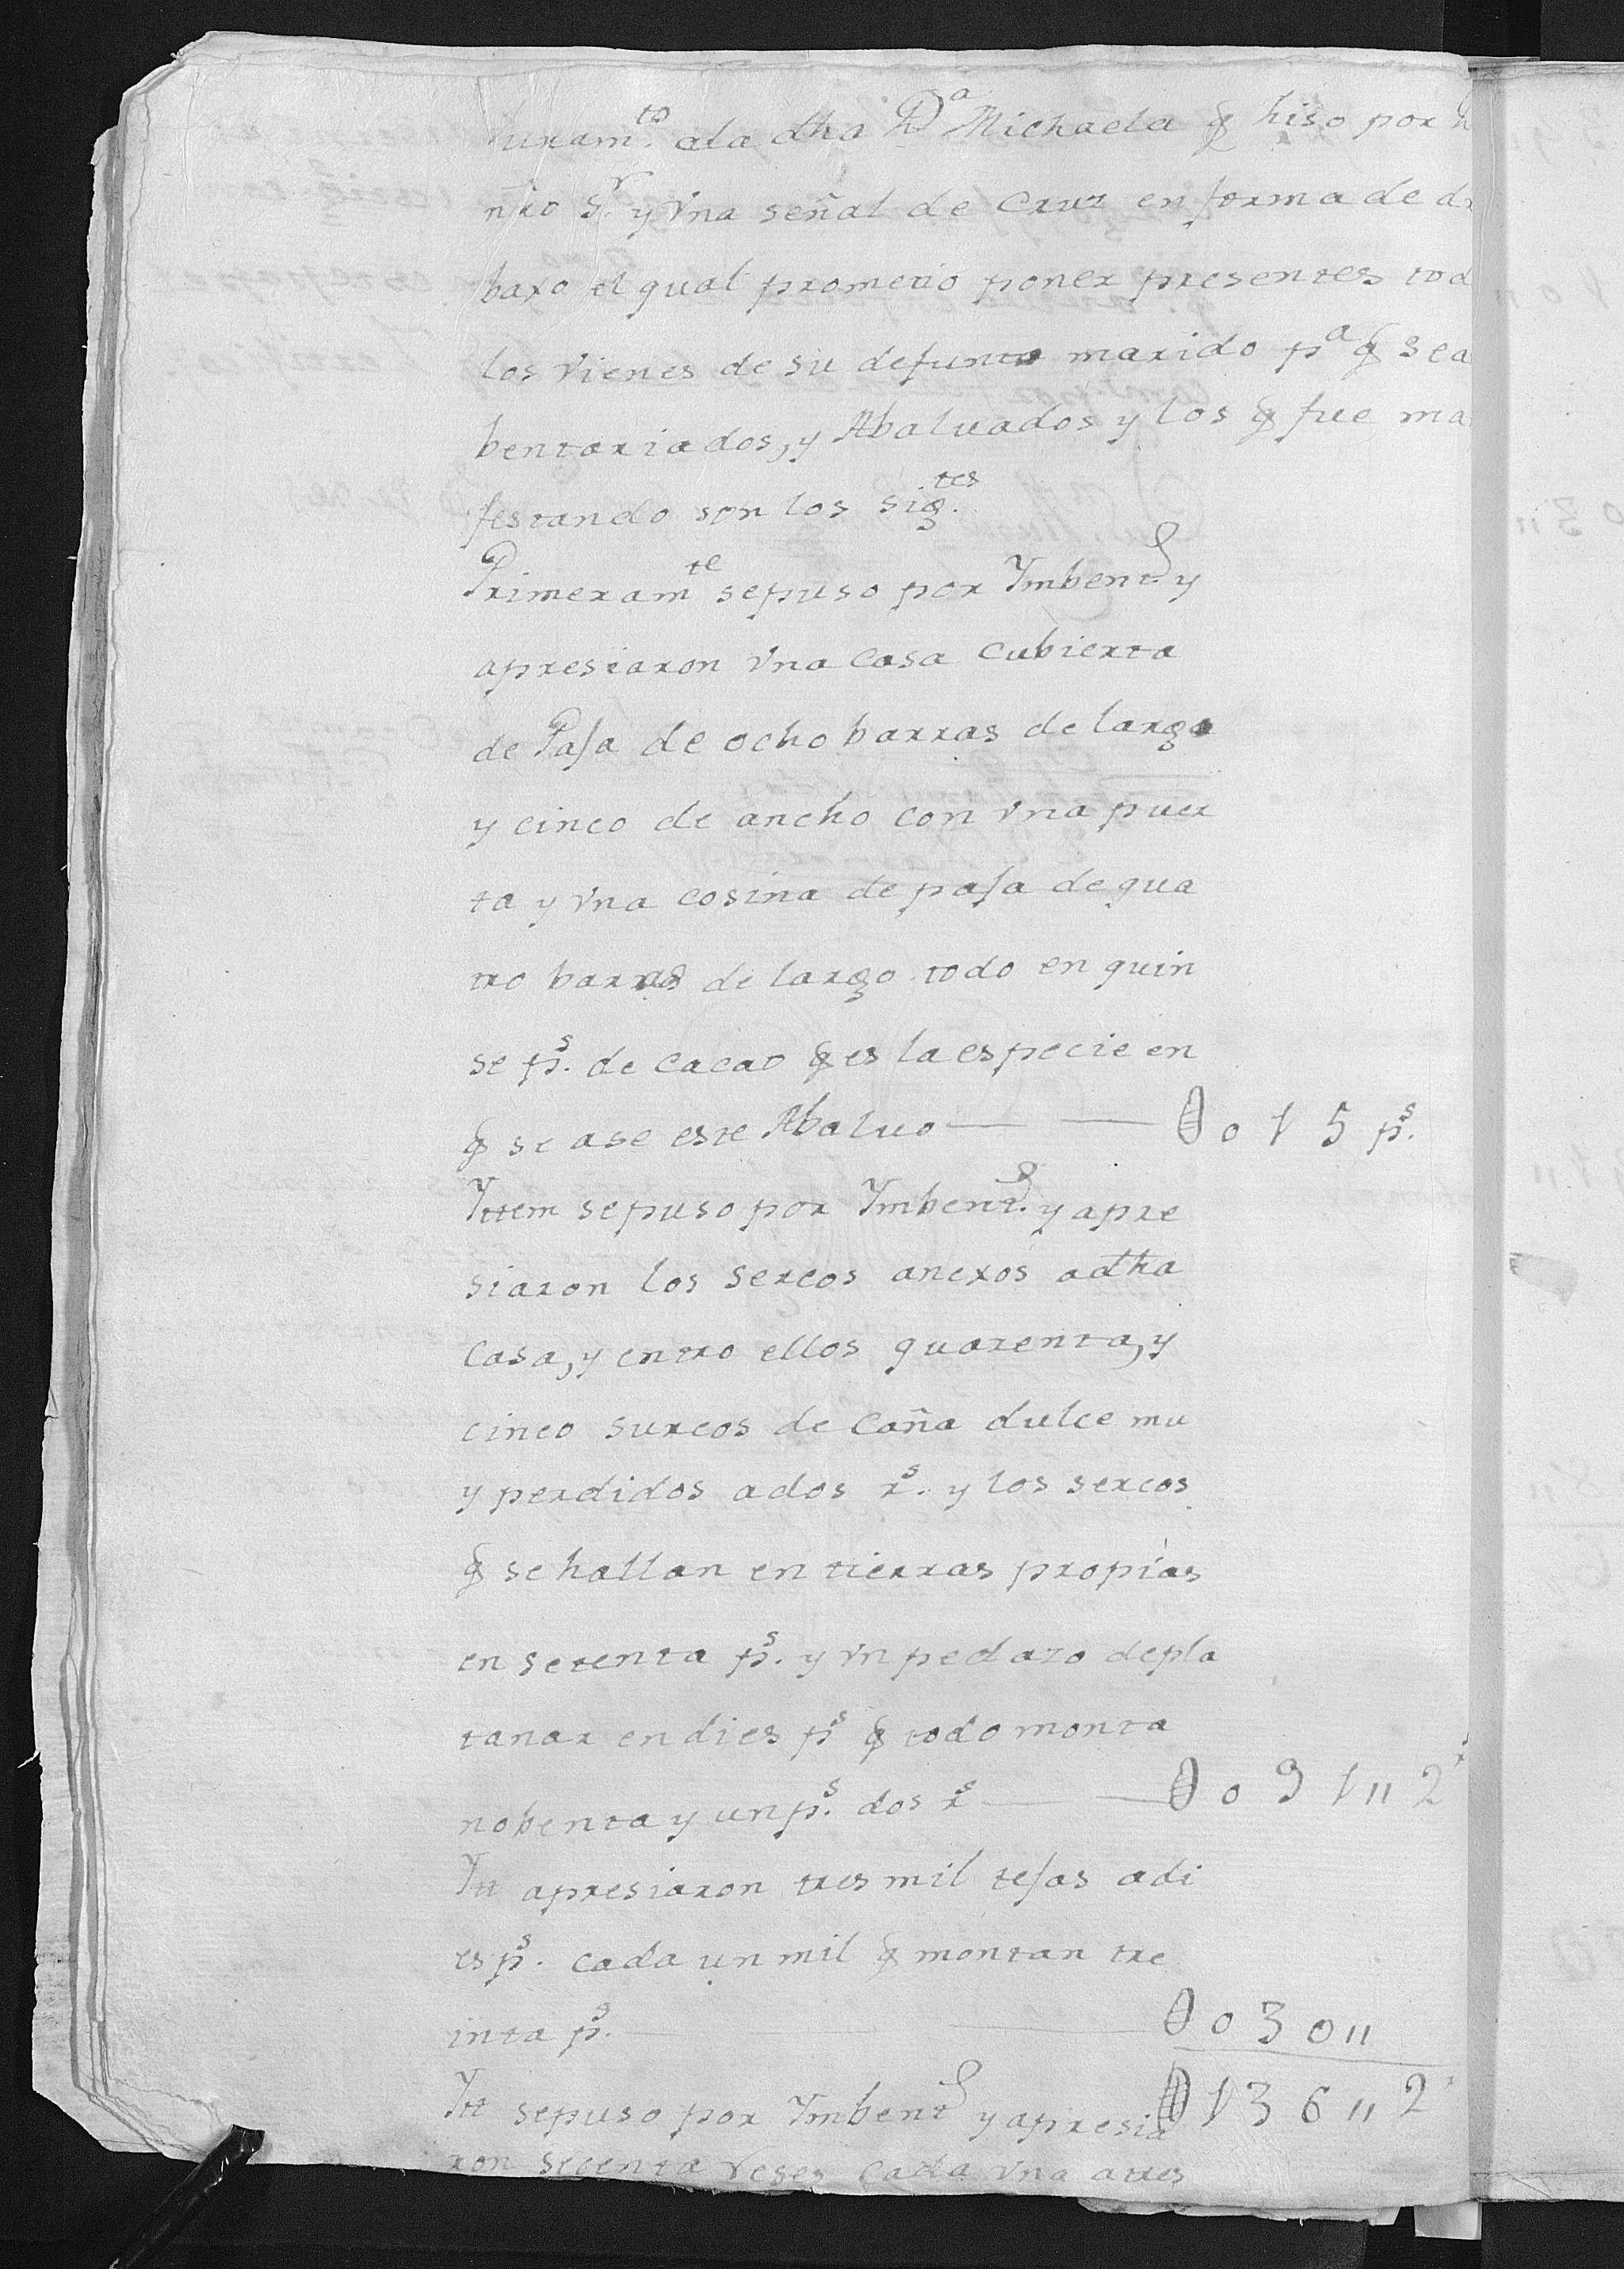 Juram.to ala dha D.a Michaela q̃ hiso por
ñro S.r y Vna señal de Cruz en forma de
baxo el qual prometio poner presentes tod
los Vienes de su defunto marido p.a q̃ sea
bentariados, y Abaluados y los q̃ fue ma
festando son los sig.tes
Primeram.te sepuso por Ymbent.o y
apresiaron Vna Casa Cubierta
de Paja de ocho barras de largo
y cinco de ancho con Vna puer
ta y Vna cosina de paja de qua
tro barras de largo todo en quin
se p.s de cacao q̃ es la especie en
q̃ se ase este Abaluo — — 0015 p.s
Yttem sepuso por Ymbent.o y apre
siaron los sercos anexos adha
Casa, y entro ellos quarenta, y
cinco surcos de Caña dulce mu
y perdidos ados r.s y los sercos
q̃ se hallan en tierras propias
en setenta p.s y Vn pedazo depla
tanar en dies p.s q̃ todo monta
nobenta y un p.s dos r.s — — 0091 " 2
Ytt apresiaron tres mil tejas adi
es p.s cada un mil q̃ montan tre
inta p.s — — 0030 "
Ytt sepuso por Ymbent.o y apresia 0136 " 2
ron setenta Reses Cada Vna atres